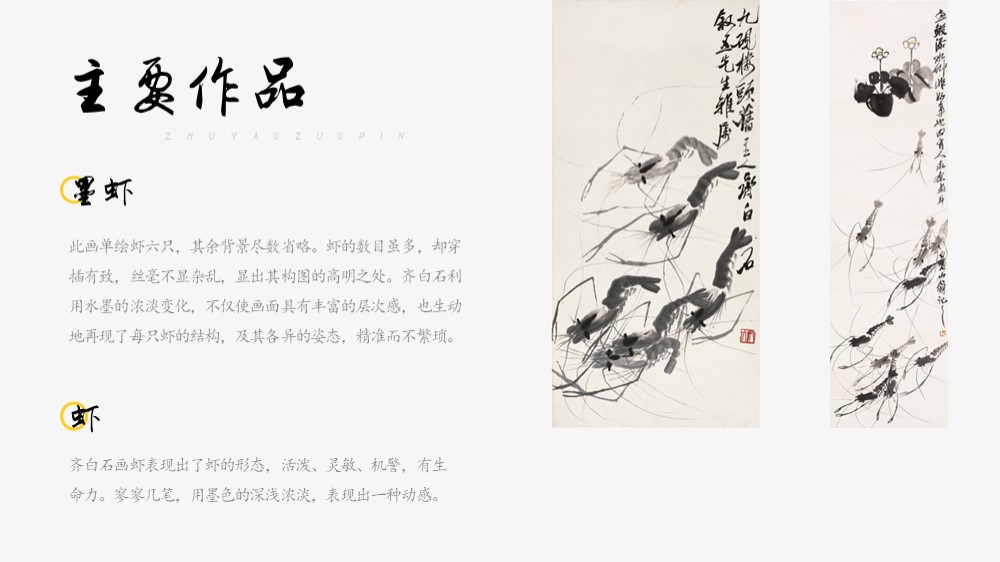 主要作品
ZHUYAOZUOPIN
墨虾
此画单绘虾六只，其余背景尽数省略。虾的数目虽多，却穿
插有致，丝毫不显杂乱，显出其构图的高明之处。齐白石利
用水墨的浓淡变化，不仅使画面具有丰富的层次感，也生动
地再现了每只虾的结构，及其各异的姿态，精准而不繁琐。
虾
齐白石画虾表现出了虾的形态，活泼、灵敏、机警，有生
命力。寥寥几笔，用墨色的深浅浓淡，表现出一种动感。
九砚楼头旧主人齊白石
叙五先生雅属